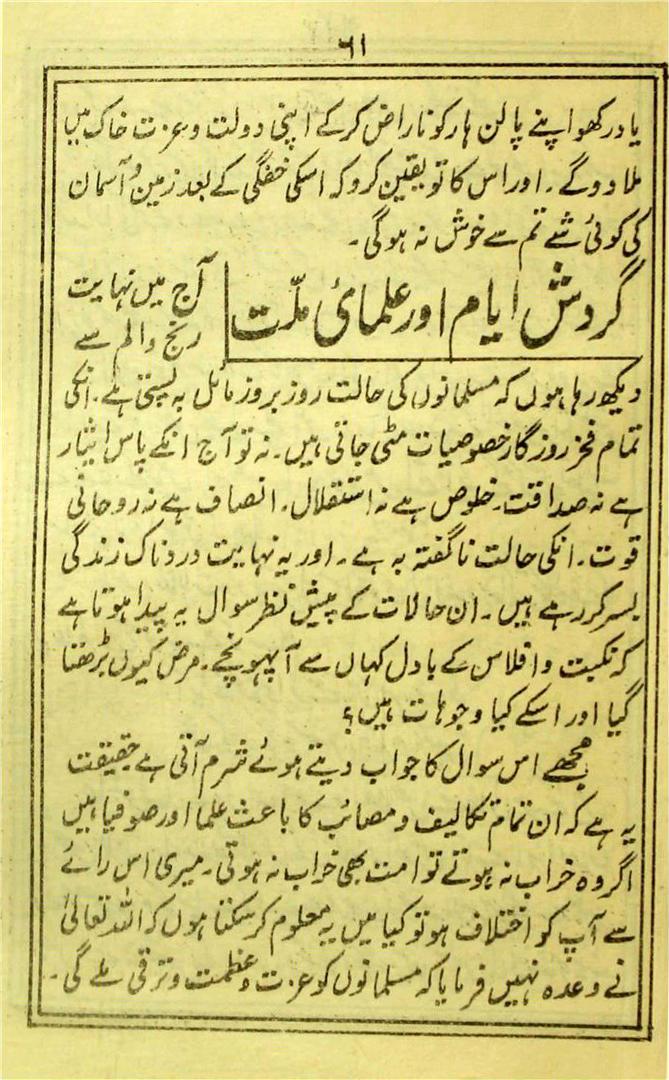 ٦١
یاد رکھو اپنے پالن ہار کو ناراض کرکے اپنی دولت و عزت خاک میں
ملا دو گے۔ اور اس کا تو یقین کرو کہ اسکی خفگی کے بعد زمین و آسمان
کی کوئی شے تم سے خوش نہ ہوگی۔
گردش ایام اور علمائ ملّت
آج میں نہایت
رنج و الم سے
دیکھ رہا ہوں کہ مسلمانوں کی حالت روز بروز مائل بہ پستی ہے۔ انکی
تمام فخر روزگار خصوصیات مٹی جاتی ہیں۔ نہ تو آج انکے پاس ایثار
ہے نہ صداقت۔ خلوص ہے نہ استقلال۔ انصاف ہے نہ روحانی
قوت۔ انکی حالت ناگفتہ بہ ہے۔ اور یہ نہایت دردناک زندگی
بسر کر رہے ہیں۔ ان حالات کے پیش نظر سوال یہ پیدا ہوتا ہے
کہ نکبت و افلاس کے بادل کہاں سے آپہونچے۔ مرض کیوں بڑھتا
گیا اور اسکے کیا وجوہات ہیں؟
مجھے اس سوال کا جواب دیتے ہوئے شرم آتی ہے حقیقت
یہ ہے کہ ان تمام تکالیف و مصائب کا باعث علما اور صوفیا ہیں
اگر وہ خراب نہ ہوتے تو امت بھی خراب نہ ہوتی۔ میری اس رائے
سے آپ کو اختلاف ہو تو کیا میں یہ معلوم کر سکتا ہوں کہ اللہ تعالیٰ
نے وعدہ نہیں فرمایا کہ مسلمانوں کو عزت و عظمت و ترقی ملے گی۔